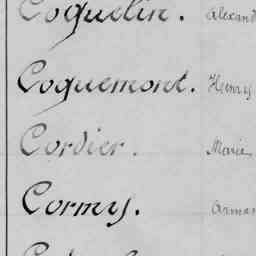 Coquelin. Alexand
Coquemont. Henry
Cordier. Marie
Cormy. Arman